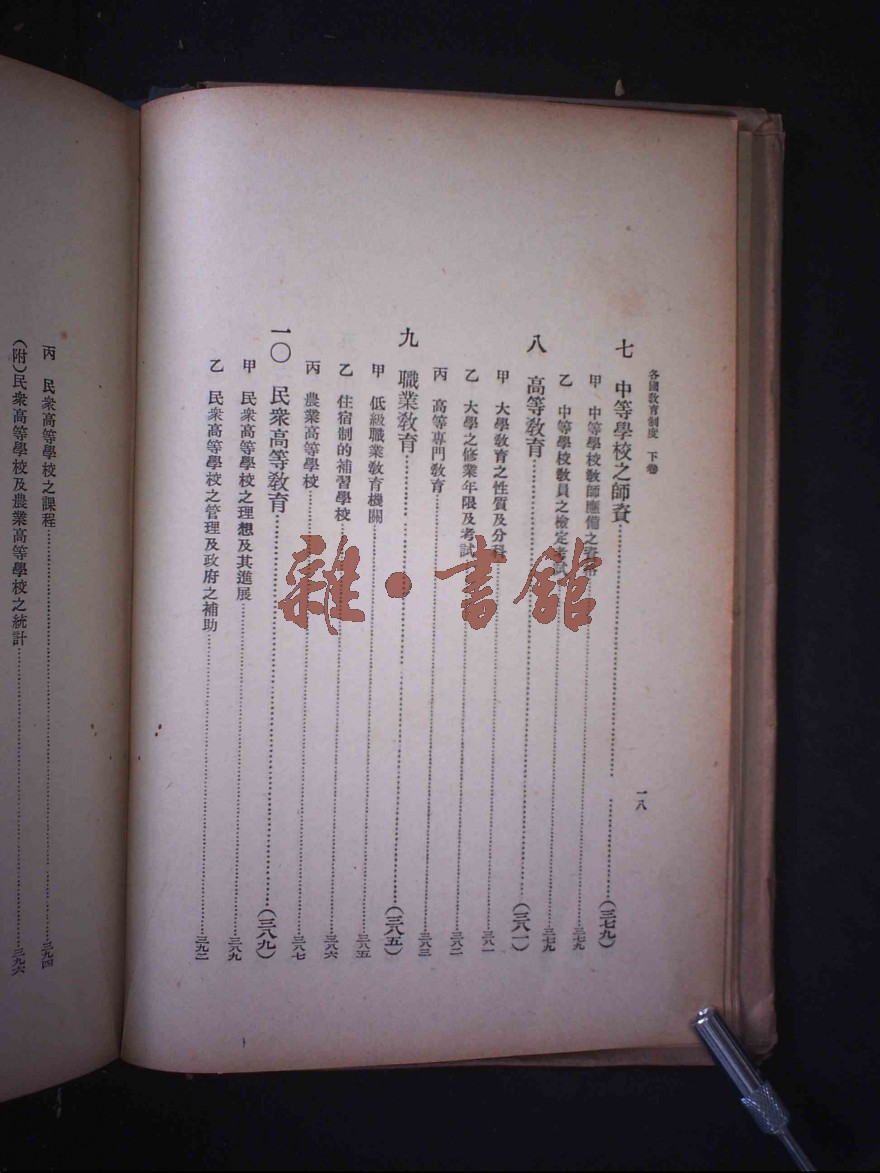 各國教育制度 下卷
一八
七 中等學校之師資……(三七九)
甲 中等學校教師應備之資格……三七九
乙 中等學校教員之檢定考試……三七九
八 高等教育……(三八一)
甲 大學教育之性質及分科……三八一
乙 大學之修業年限及考試……三八二
丙 高等專門教育……三八三
九 職業教育……(三八五)
甲 低級職業教育機關……三八五
乙 住宿制的補習學校……三八六
丙 農業高等學校……三八七
一〇 民衆高等教育……(三八九)
甲 民衆高等學校之理想及其進展……三八九
乙 民衆高等學校之管理及政府之補助……三九二
丙 民衆高等學校之課程……三九四
(附)民衆高等學校及農業高等學校之統計……三九六
雜·書館